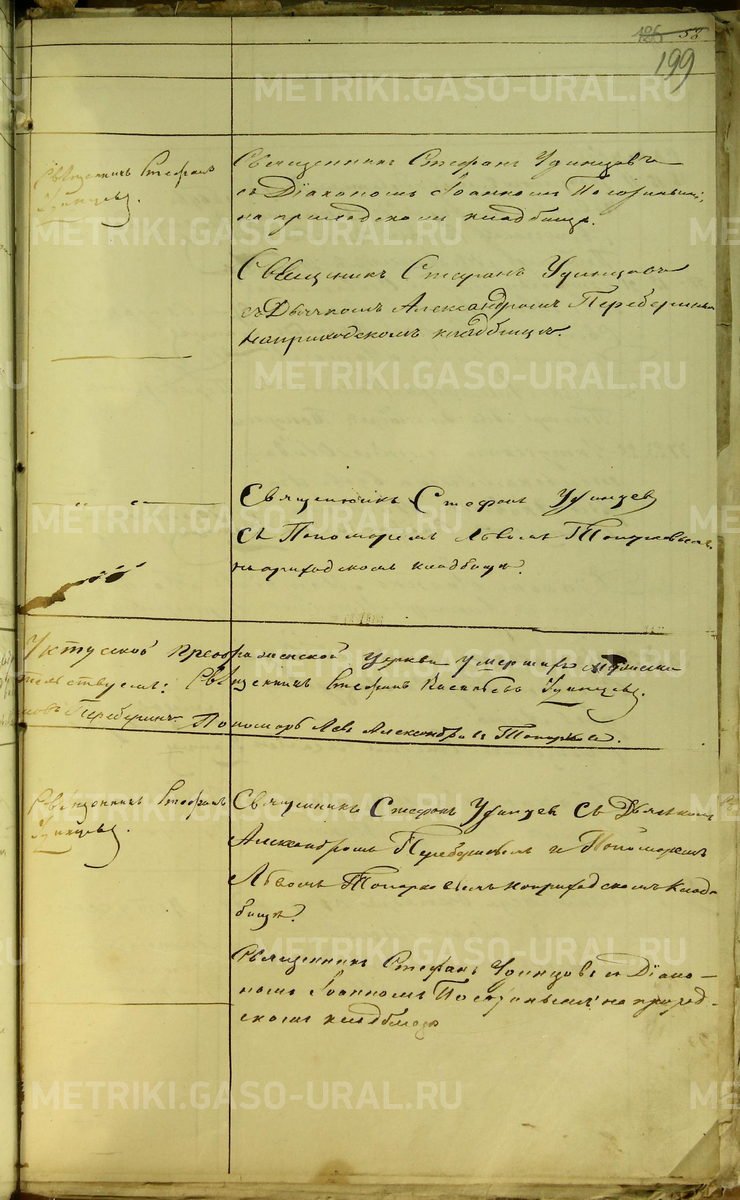 126 58
199
Священникъ Стефанъ
Удинцевъ.
Священникъ Стефанъ Удинцовъ
съ Діакономъ Іоанномъ
на приходскомъ кладбищѣ.
Священикъ Стефанъ Удинцовъ
съ Дьячкомъ Александромъ
наприходскомъ кладбищѣ.
Священникъ Стефанъ Удинцев
съ Пономаремъ Львомъ Топорковымъ
на приходскомъ кладбищѣ.
Уктусской преображенской церкви умершихъ
Священникъ Стефанъ Удинцевъ.
Переберинъ Пономарь Левъ Александровъ Топорковъ.
Священникъ Стефанъ
Удинцевъ.
Священникъ Стефанъ Удинцев съ Дьячкомъ
Александромъ и Пономаремъ
Львомъ Топорковымъ наприходскомъ Кладъ
бищѣ.
Священникъ Стефанъ Удинцовъ съ Діако-
номъ Іоанномъ на приход-
скомъ кладбищѣ
METRIKI.GASO-URAL.RU